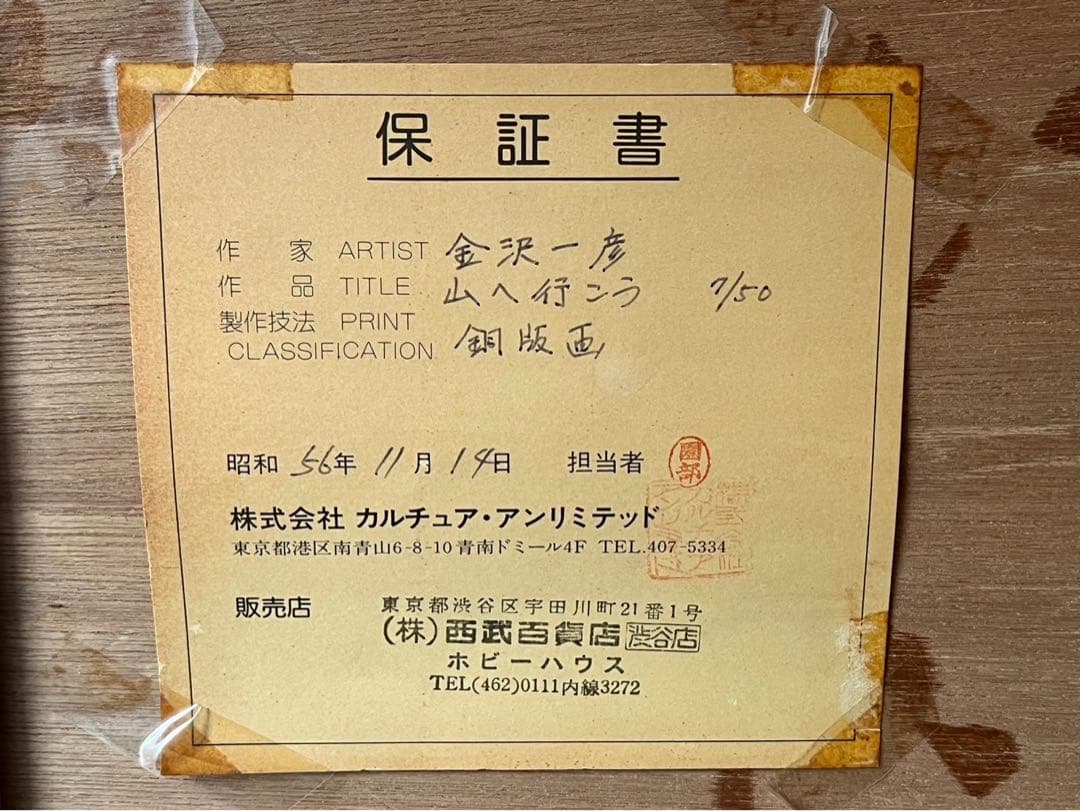 保証書
作家 ARTIST 金沢一彦
作品 TITLE 山へ行こう 7/50
製作技法 PRINT
CLASSIFICATION 銅版画
昭和 56年 11月 14日 担当者 園部
株式会社 カルチュア・アンリミテッド
東京都港区南青山6-8-10 青南ドミール4F TEL.407-5334
販売店 東京都渋谷区宇田川町21番1号
(株)西武百貨店 渋谷店
ホビーハウス
TEL(462)0111内線3272